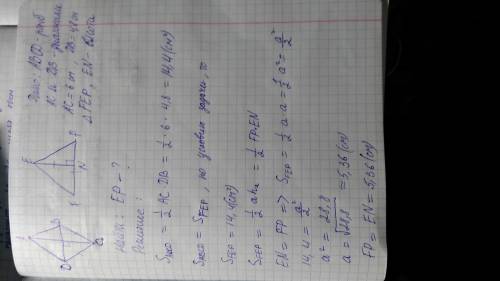 Дано: ABCD - ромб
AC и DB - диагонали
AC = 6 см DB = 4,8 см
△ FEP, EN - высота
E
F
N
P
B
D
Найти: EP - ?
Решение:
S = 1/2 AC · DB = 1/2 · 6 · 4,8 = 14,4 (см)
S = S_FEP, по условию задачи, =>
S_FEP = 14,4 (см)
S_FEP = 1/2 ah_a = 1/2 FP · EN
EN = FP => S_FEP = 1/2 a · a = 1/2 a² = a²/2
14,4 = a²/2
a² = 28,8
a = √28,8 = 5,36 (см)
FP = EN = 5,36 (см)